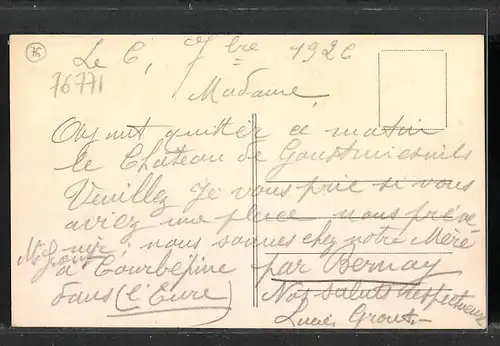 76
Le 6, 7bre 1926
76771
Madame,
Ayant quitter ce matin
le Château de
Veuillez Je vous prie si vous
aviez une place nous préve
nir; nous sommes chez notre Mère
à Courbépine par Bernay
dans (l'Eure) Nos saluts Respectueux
Lucien Grout